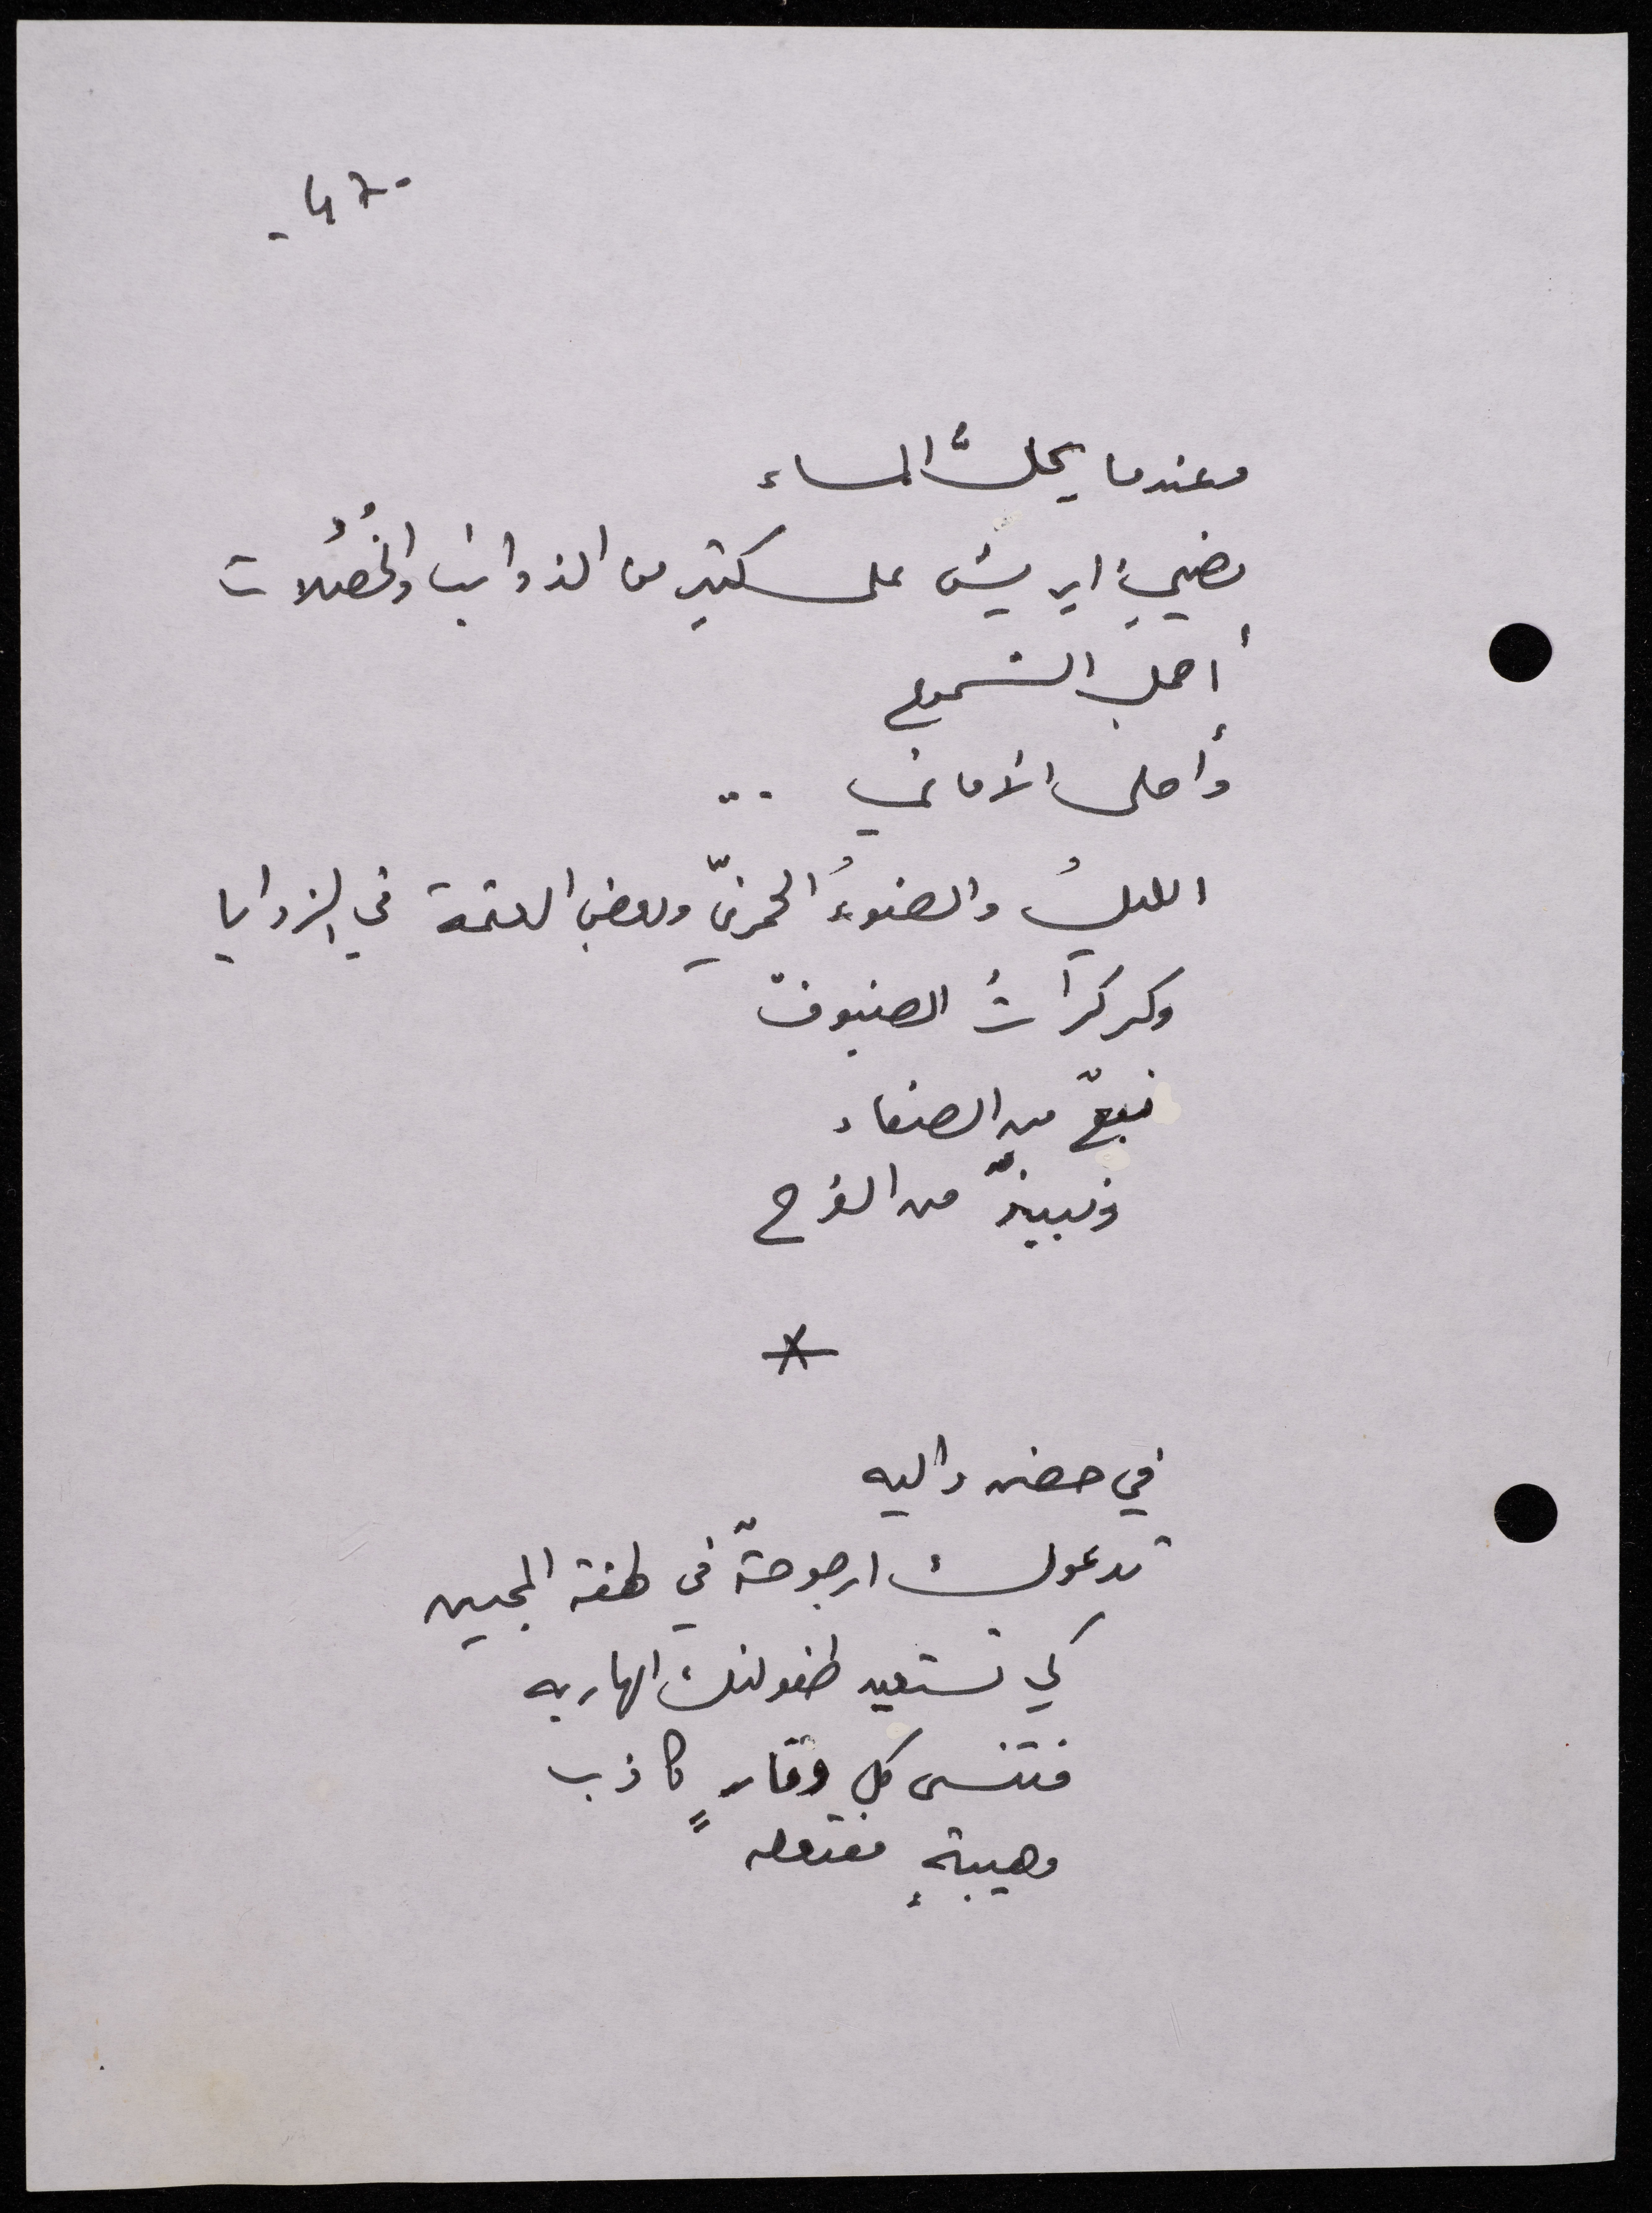 - 47 -
وعندما يحلُّ المساء
يضيءُ ايريش على كثيرٍ من الذوائب والخُصُلات
أجملَ الشموع
وأحلى الأماني ...
الليلُ والضوءُ الخمريّ وبعض العتمة في الزوايا
وكركراتُ الضيوف
نبعٌ من الصفاء
ونبيذٌ من الفرح
*
في حضن داليه
تدعوك ارجوحةٌ في لهفة المحبين
كي تستعيد طفولتك الهاربه
فتنسى كل وقارٍ كاذب
وهيبةٍ مفتعله